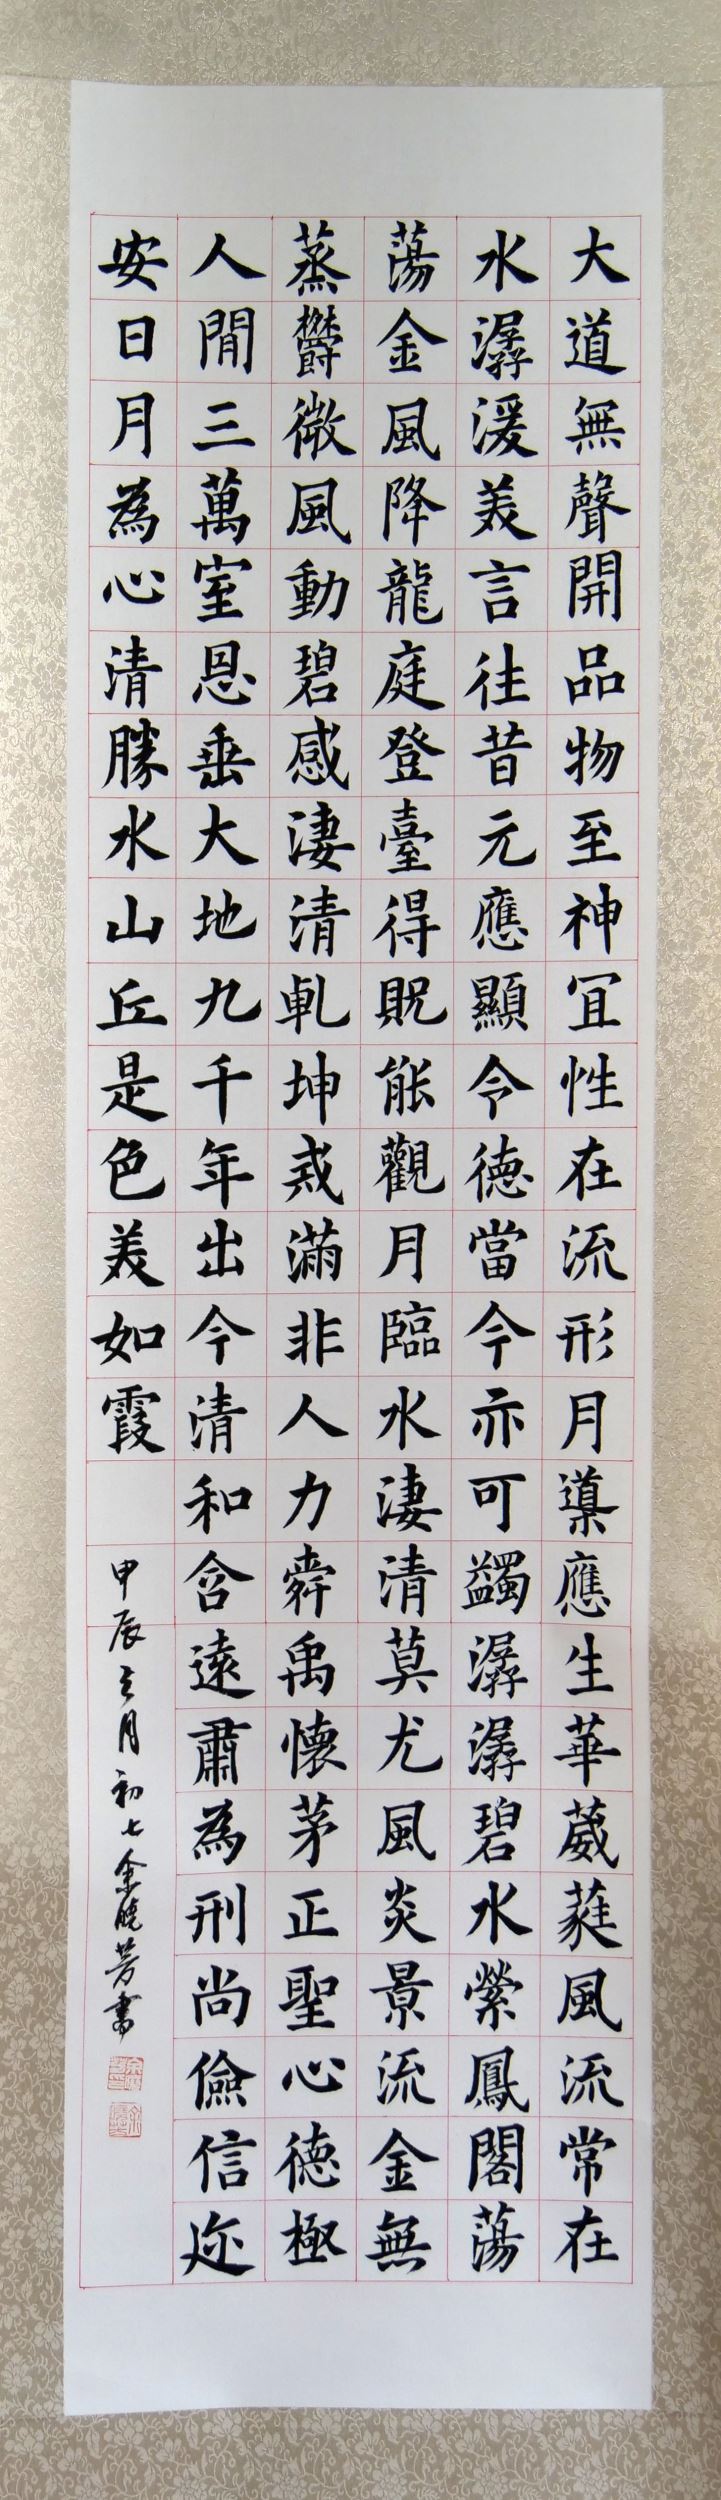 大道無聲開品物至神冝性在流形月導應生華葳蕤風流常在
水潺湲美言往昔元應顯令德當今亦可蠲潺潺碧水縈鳳閣蕩
蕩金風降龍庭登臺得貺能觀月臨水淒清莫尤風炎景流金無
蒸鬱微風動碧感淒清乹坤戒滿非人力舜禹懷茅正聖心德極
人間三萬室恩垂大地九千年出今清和含遠肅為刑尚儉信迩
安日月為心清勝水山丘是色美如霞
甲辰三月初七余曉芳書